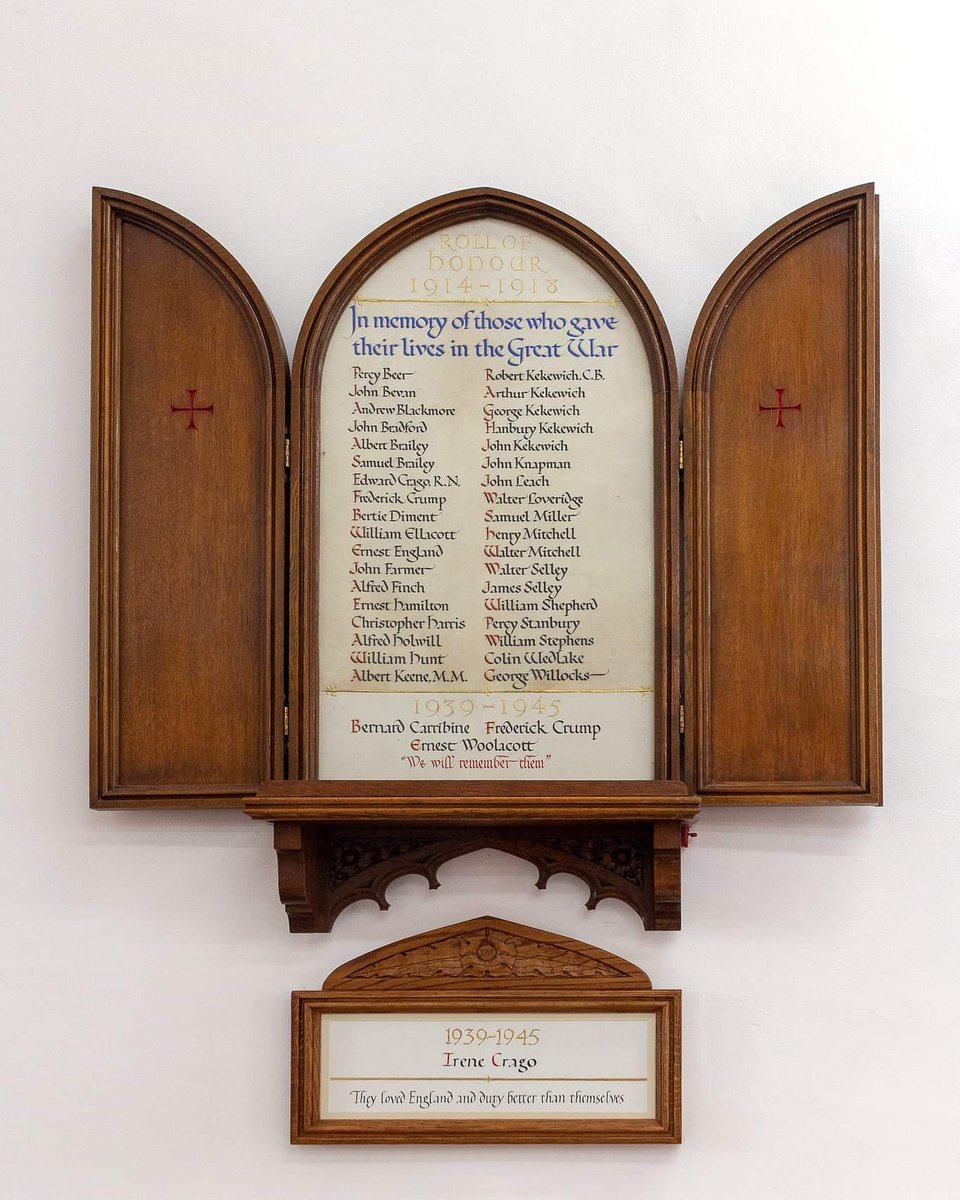 ROLL OF
HONOUR
1914-1918
In memory of those who gave
their lives in the Great War
Percy Beer
John Bevan
Andrew Blackmore
John Bradford
Albert Brailey
Samuel Brailey
Edward Crago, R.N.
Frederick Crump
Bertie Diment
William Ellacott
Ernest England
John Farmer
Alfred Finch
Ernest Hamilton
Christopher Harris
Alfred Holwill
William Hunt
Albert Keene, M.M.
Robert Kekewich, C.B.
Arthur Kekewich
George Kekewich
Hanbury Kekewich
John Kekewich
John Knapman
John Leach
Walter Loveridge
Samuel Miller
Henry Mitchell
Walter Mitchell
Walter Selley
James Selley
William Shepherd
Percy Stanbury
William Stephens
Colin Wedlake
George Willocks
1939-1945
Bernard Carribine Frederick Crump
Ernest Woolacott
"We will remember them"
1939-1945
Irene Crago
They loved England and duty better than themselves